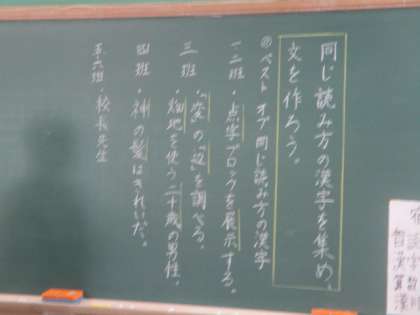 同じ読み方の漢字を集め、
文を作ろう。
◎ベスト オブ 同じ読み方の漢字
一二班・点字ブロックを展示する。
三班・「姿」の「辺」を調べる。
・畑地を使う二十歳の男性。
四班・神の髪はきれいだ。
五六班・校長先生